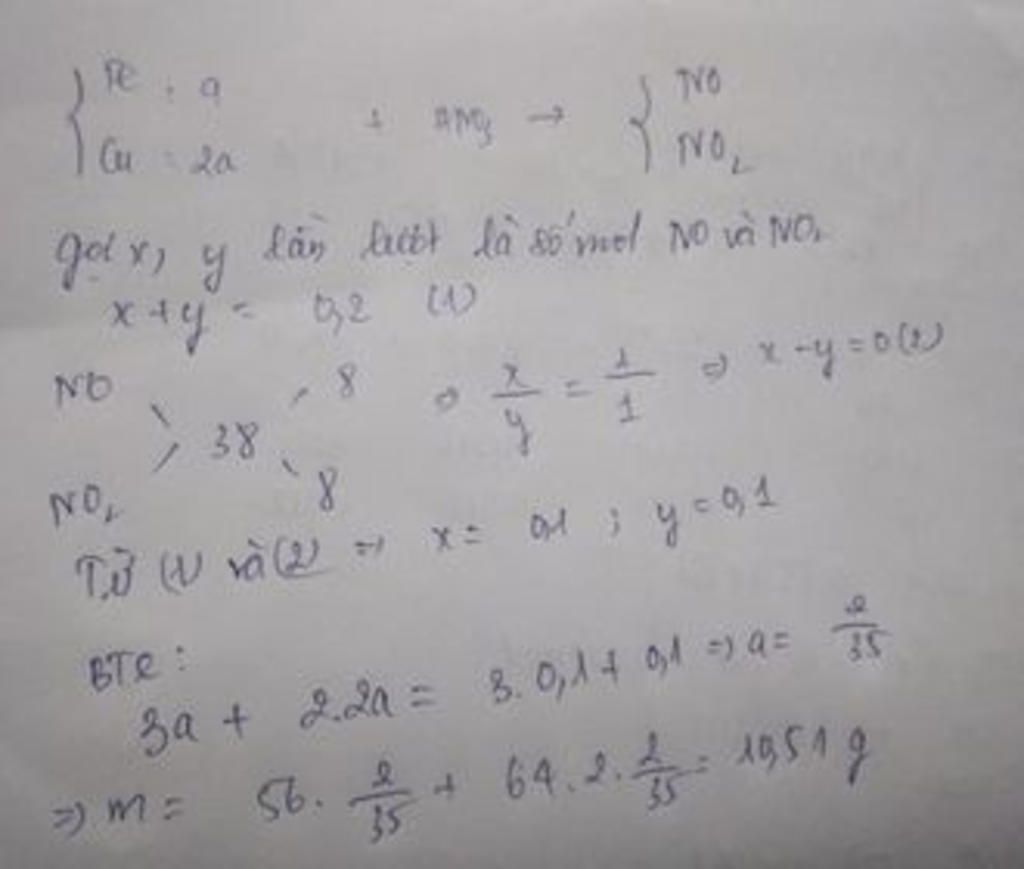 Fe : a
+ HNO3 → { NO
Cu : 2a
NO2
gọi x, y lần lượt là số mol NO và NO2
x + y = 0,2 (1)
NO 8 => x/y = 1/1 => x - y = 0 (2)
38
NO2 8
Từ (1) và (2) => x = 0,1 ; y = 0,1
BTe :
3a + 2.2a = 3.0,1 + 0,1 => a = 2/35
=> m = 56. 2/35 + 64.2. 2/35 = 10,51 g